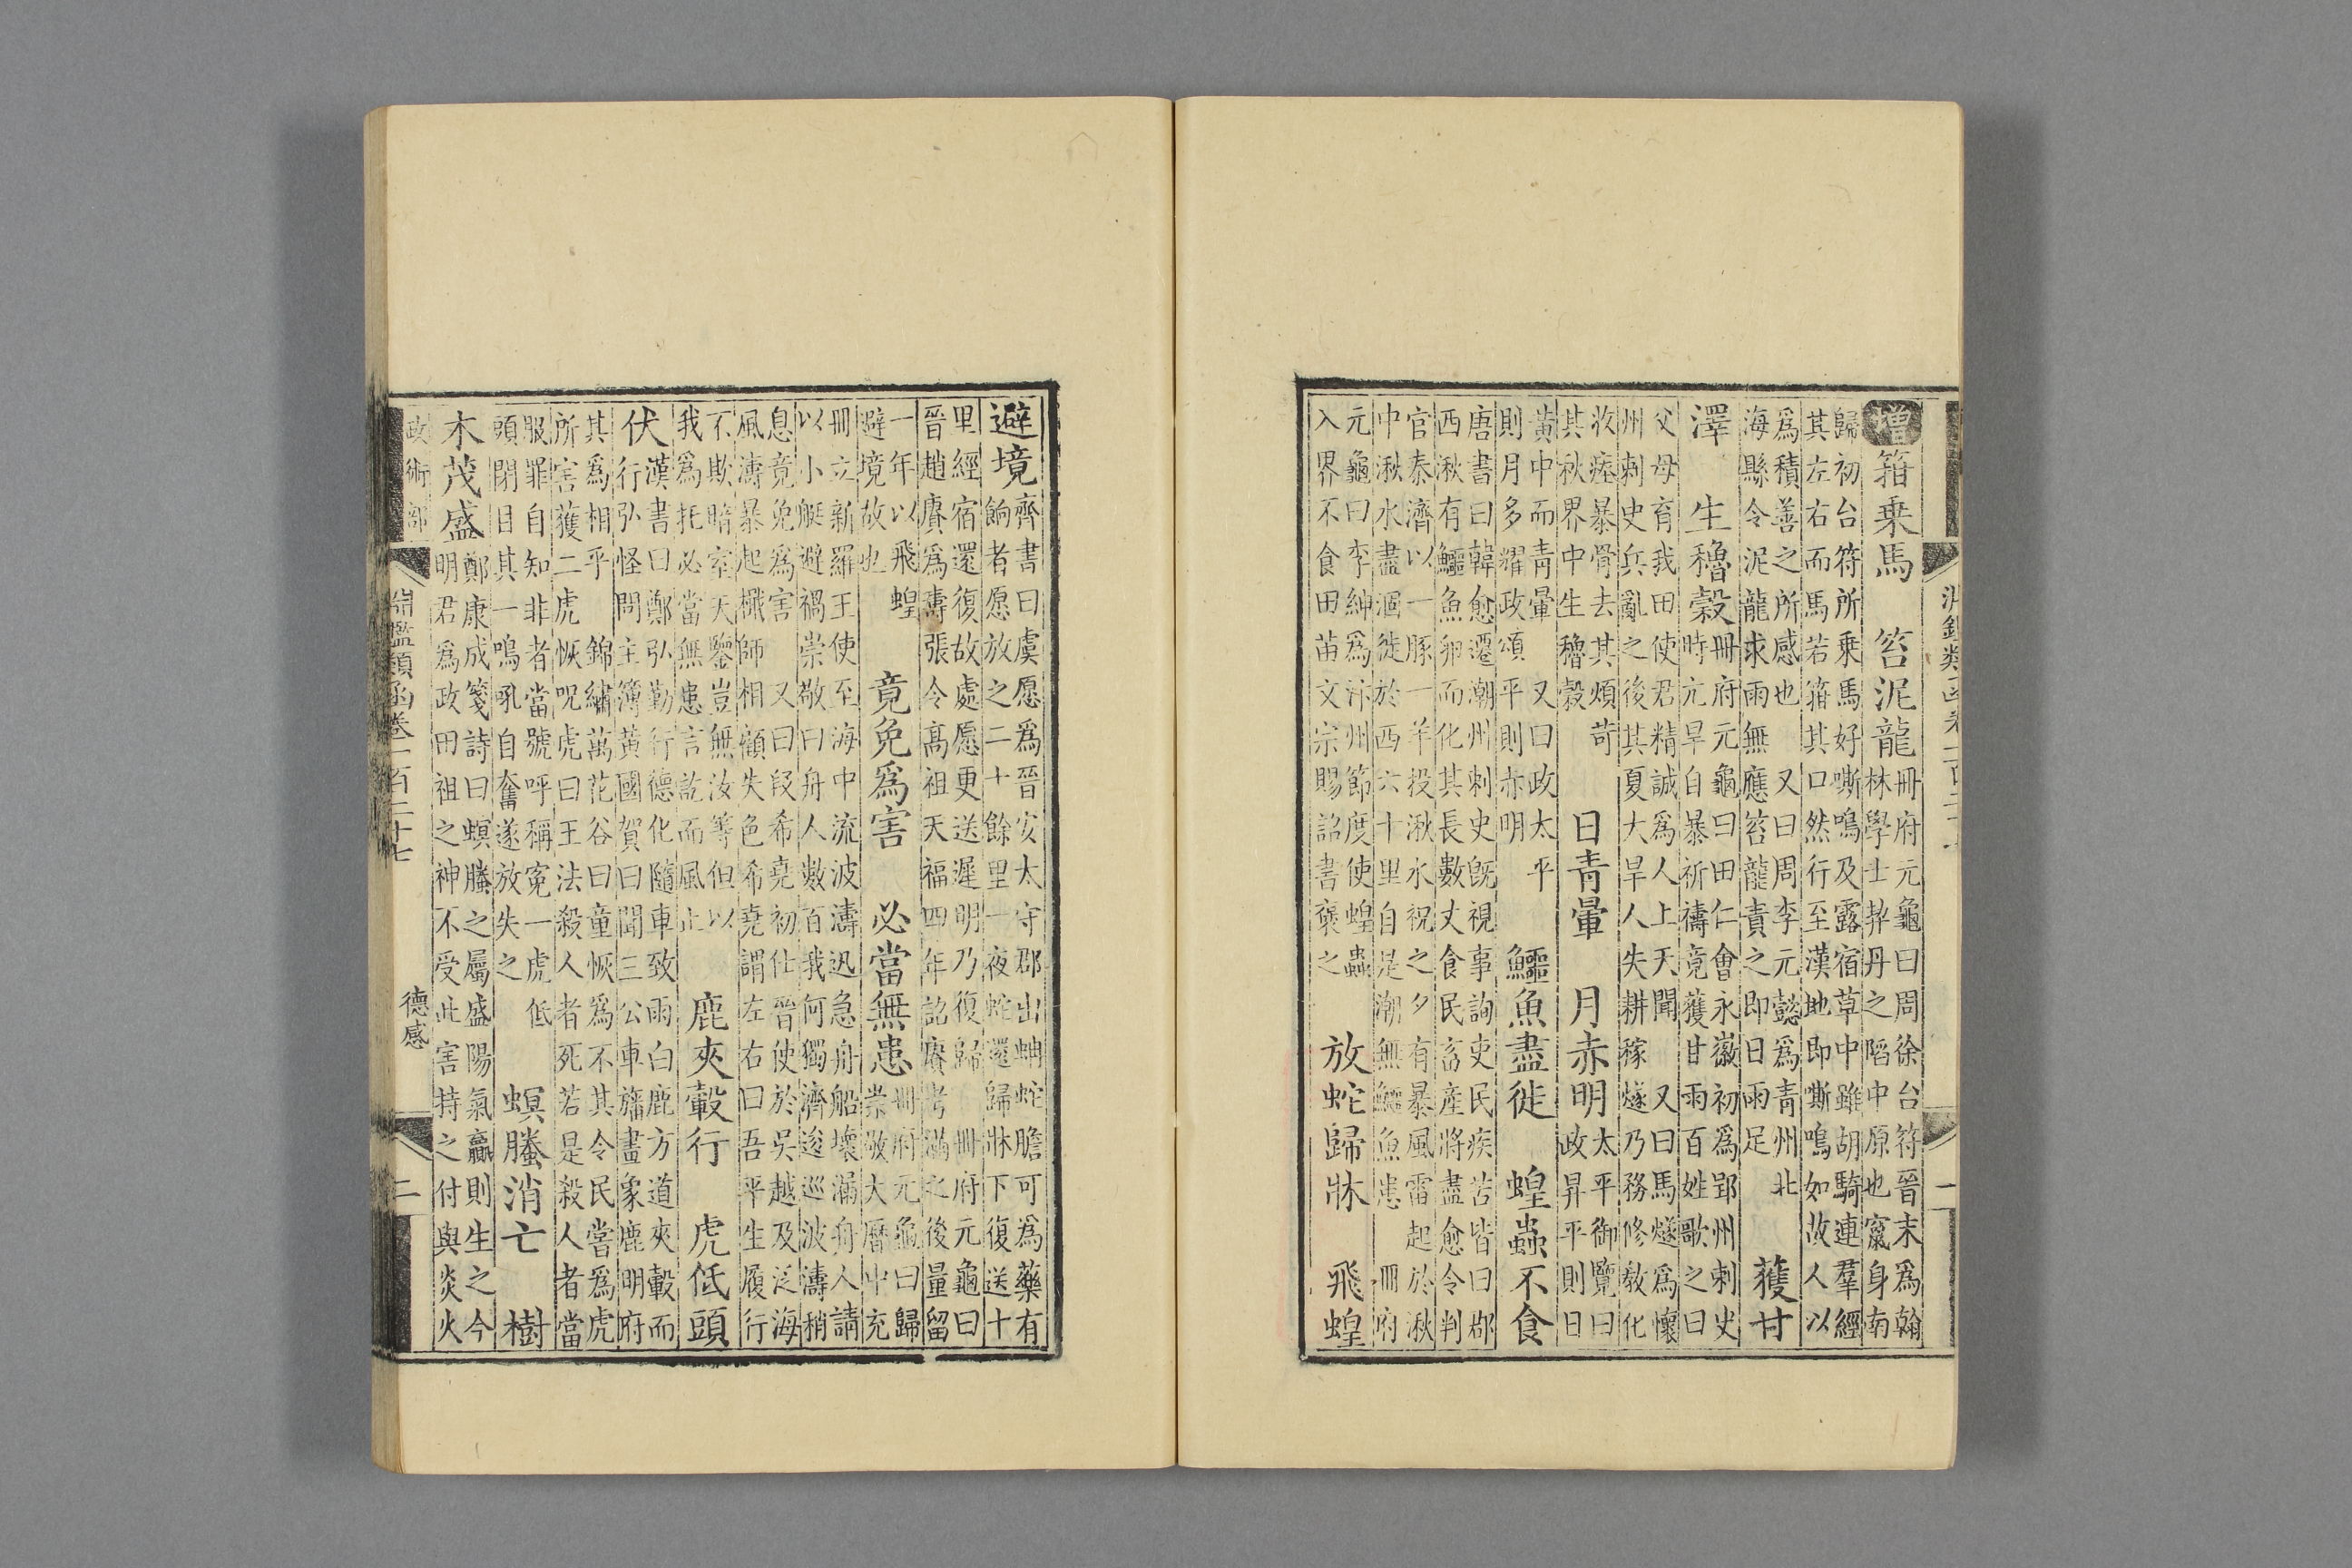 增 箝乘馬 笞泥龍 冊府元龜曰周徐台符晉末為翰
林學士契丹之陷中原也竄身南
歸初台符所乘馬好嘶鳴及露宿草中雖胡騎連羣經
其左右而馬若箝其口然行至漢地即嘶鳴如故人以
為積善之所感也 又曰周李元懿為青州北
海縣令泥龍求雨無應笞龍責之即日雨足 獲甘
澤 生穭穀 冊府元龜曰田仁會永徽初為郢州刺史
時亢旱自暴祈禱竟獲甘雨百姓歌之曰
父母育我田使君精誠為人上天聞 又曰馬燧為懷
州刺史兵亂之後其夏大旱人失耕稼燧乃務修教化
收瘞暴骨去其煩苛
其秋界中生穭穀 日青暈 月赤明 太平御覽曰
政昇平則日
黃中而青暈 又曰政太平
則月多耀政頌平則赤明 鱷魚盡徙 蝗蟲不食
唐書曰韓愈遷潮州刺史既視事詢吏民疾苦皆曰郡
西湫有鱷魚卵而化其長數丈食民畜產將盡愈令判
官秦濟以一豚一羊投湫水祝之夕有暴風雷起於湫
中湫水盡涸徙於西六十里自是潮無鱷魚患 冊府
元龜曰李紳為汴州節度使蝗蟲
入界不食田苗文宗賜詔書褒之 放蛇歸牀 飛蝗
避境 齊書曰虞愿為晉安太守郡出蚺蛇膽可為藥有
餉者愿放之二十餘里一夜蛇還歸牀下復送十
里經宿還復故處愿更送遲明乃復歸 冊府元龜曰
晉趙賡為壽張令高祖天福四年詔賡考滿之後量留
一年以飛蝗
避境故也 竟免為害 必當無患 冊府元龜曰歸
崇敬大曆中充
冊立新羅王使至海中流波濤迅急舟船壞漏舟人請
以小艇避禍崇敬曰舟人數百我何獨濟逡巡波濤稍
息竟免為害 又曰段希堯初仕晉使於吳越及泛海
風濤暴起檝師相顧失色希堯謂左右曰吾平生履行
不欺暗室天鑒豈無汝等但以
我為托必當無患言訖而風止 鹿夾轂行 虎低頭
伏 漢書曰鄭弘勤行德化隨車致雨白鹿方道夾轂而
行弘怪問主簿黃國賀曰聞三公車轓畫象鹿明府
其為相乎 錦繡萬花谷曰童恢為不其令民嘗為虎
所害獲二虎恢呪虎曰王法殺人者死若是殺人者當
服罪自知非者當號呼稱冤一虎低
頭閉目其一鳴吼自奮遂放失之 螟螣消亡 樹
木茂盛 鄭康成箋詩曰螟螣之屬盛陽氣贏則生之今
明君為政田祖之神不受此害持之付與炎火
政術部 淵鑑類函卷一百二十七 德感 二